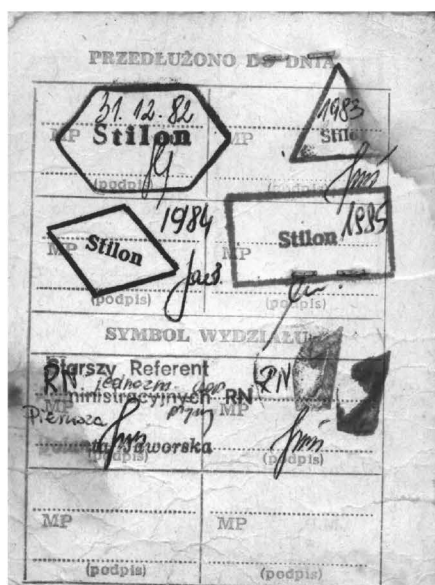 PRZEDŁUŻONO DO DNIA
31.12.82
MP Stilon
(podpis)
1983
MP Stilon
(podpis)
1984
MP Stilon
(podpis)
1985
MP Stilon
(podpis)
SYMBOL WYDZIAŁU
Starszy Referent
RN RN
Administracyjnych RN
MP MP
Pierwsza
Jolanta Jaworska
(podpis) (podpis)
MP MP
(podpis) (podpis)